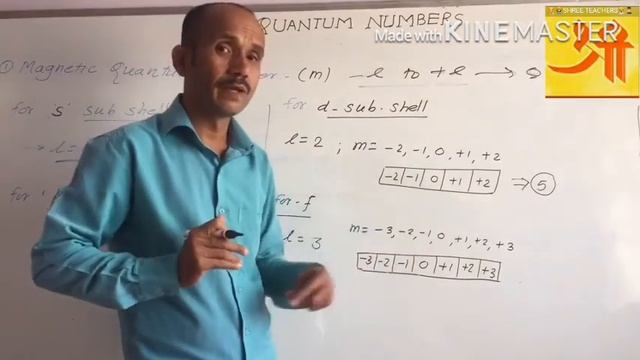 QUANTUM NUMBERS
Made with KINEMASTER
SHREE TEACHERS
श्री
① Magnetic Quant
(m) -l to +l →
for 's' sub shell
→ l =
for
for d-sub.shell
l = 2 ; m = -2, -1, 0, +1, +2
-2 -1 0 +1 +2 ⇒ ⑤
for-f
l = 3
m = -3, -2, -1, 0, +1, +2, +3
-3 -2 -1 0 +1 +2 +3